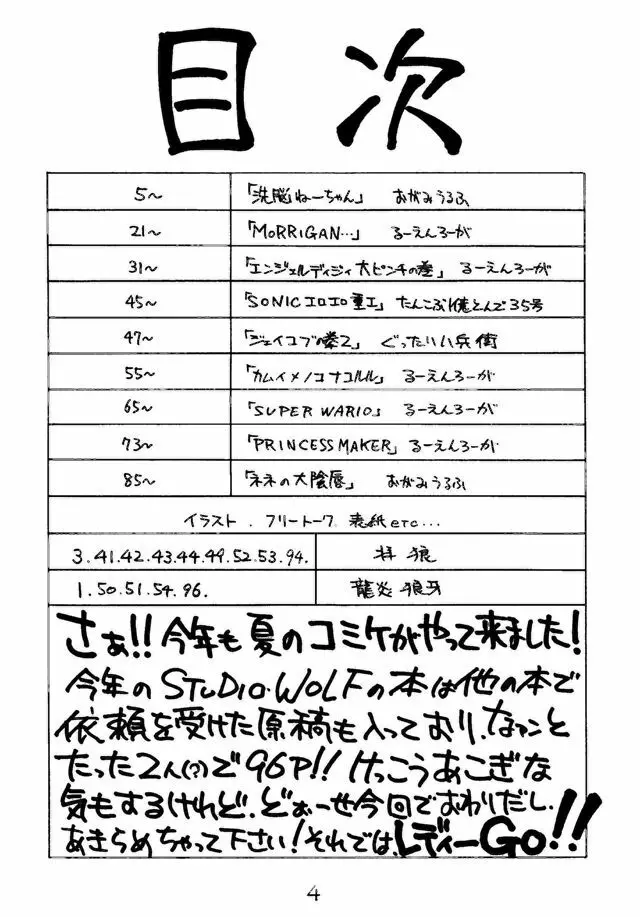 目次
5～ 「洗脳ねーちゃん」 おがみうるふ
21～ 「MORRIGAN…」 るーえんろーが
31～ 「エンジェルディジィ大ピンチの巻」 るーえんろーが
45～ 「SONICエロエロ重工」 たんこぶ1億とんで35号
47～ 「ジェイコブの拳2」 ぐったりハ兵衛
55～ 「カムイメノコナコルル」 るーえんろーが
65～ 「SUPER WARIO」 るーえんろーが
73～ 「PRINCESS MAKER」 るーえんろーが
85～ 「ネネの大陰唇」 おがみうるふ
イラスト．フリートーク 表紙etc…
3.41.42.43.44.49.52.53.94. 拝 狼
1.50.51.54.96. 龍炎 狼牙
さぁ!!今年も夏のコミケがやって来ました!
今年のSTUDIO・WOLFの本は他の本で
依頼を受けた原稿も入っており、なァンと
たった2人(?)で96P!! けっこうあこぎな
気もするけれど、どぉーせ今回でおわりだし、
あきらめちゃって下さい!それでは、レディーGo!!
4